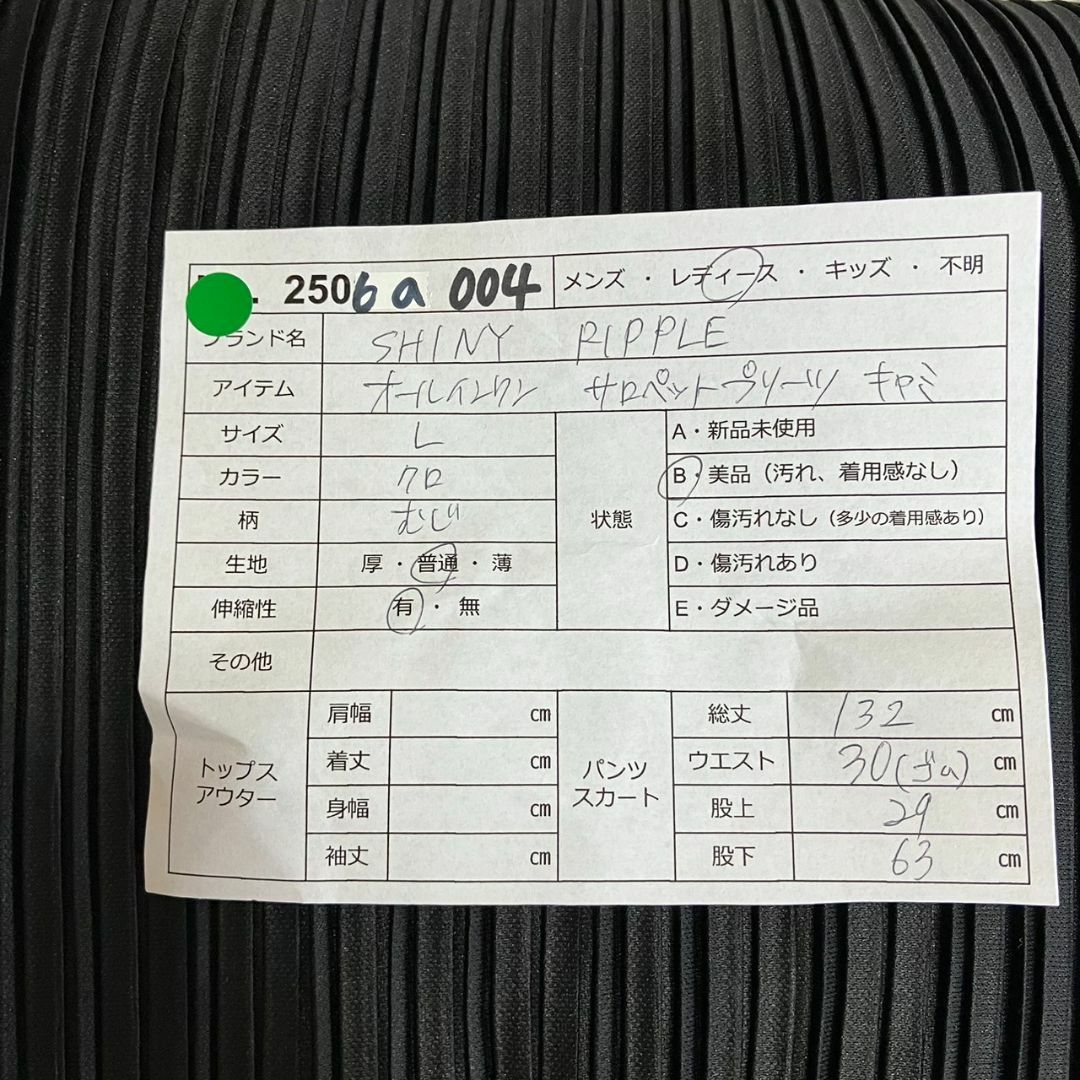 2506a 004 メンズ ・ レディース ・ キッズ ・ 不明
ブランド名 SHINY RIPPLE
アイテム オールインワン サロペットプリーツ キャミ
サイズ L
カラー クロ
柄 むじ
生地 厚 ・ 普通 ・ 薄
伸縮性 有 ・ 無
状態
A・新品未使用
B・美品（汚れ、着用感なし）
C・傷汚れなし（多少の着用感あり）
D・傷汚れあり
E・ダメージ品
その他
トップス
アウター
肩幅 cm
着丈 cm
身幅 cm
袖丈 cm
パンツ
スカート
総丈 132 cm
ウエスト 30(ゴム) cm
股上 29 cm
股下 63 cm